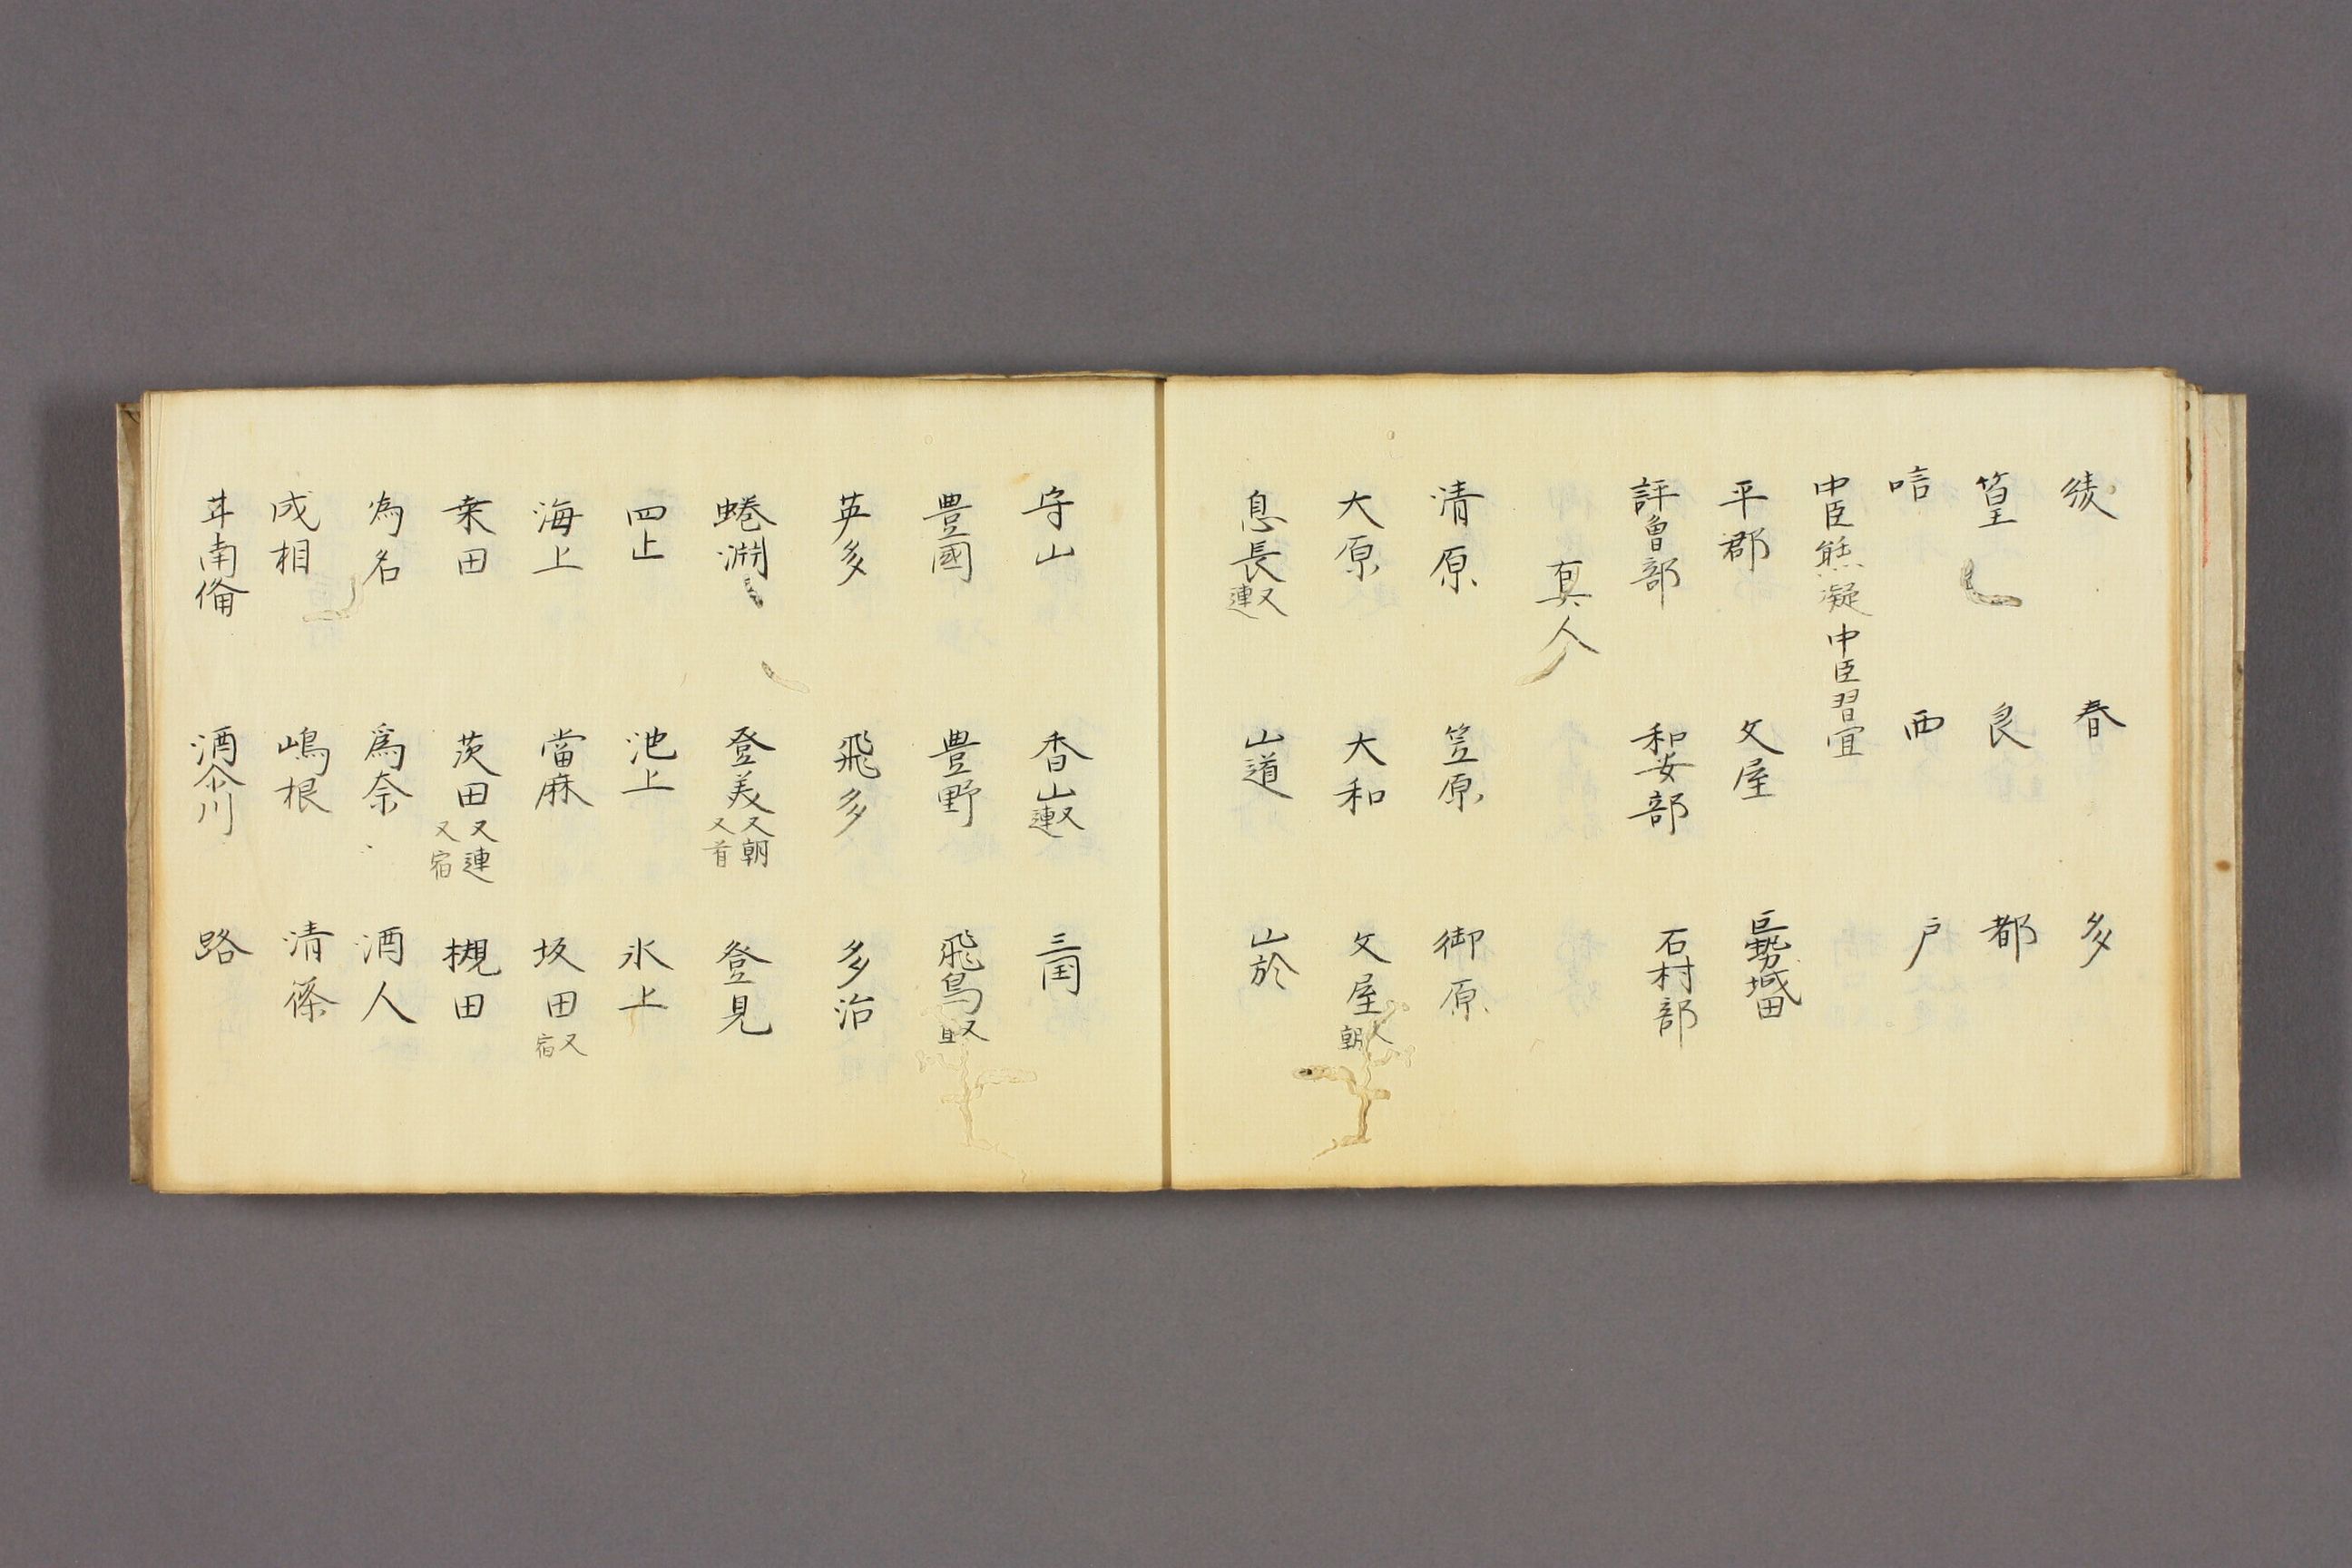 綾 春 多
篁 良 都
唁 西 戸
中臣熊凝 中臣習宜
平郡 文屋 巨勢城田
評曽部 和安部 石村部
真人
清原 笠原 御原
大原 大和 文屋又朝
息長又連 山道 山於
守山 香山又連 三国
豊國 豊野 飛鳥又直
英多 飛多 多治
蜷淵 登美又朝又首 登見
四上 池上 氷上
海上 當麻 坂田又宿
桒田 茨田又連又宿 槻田
為名 爲奈 酒人
成相 嶋根 清篠
南備 酒 川 路